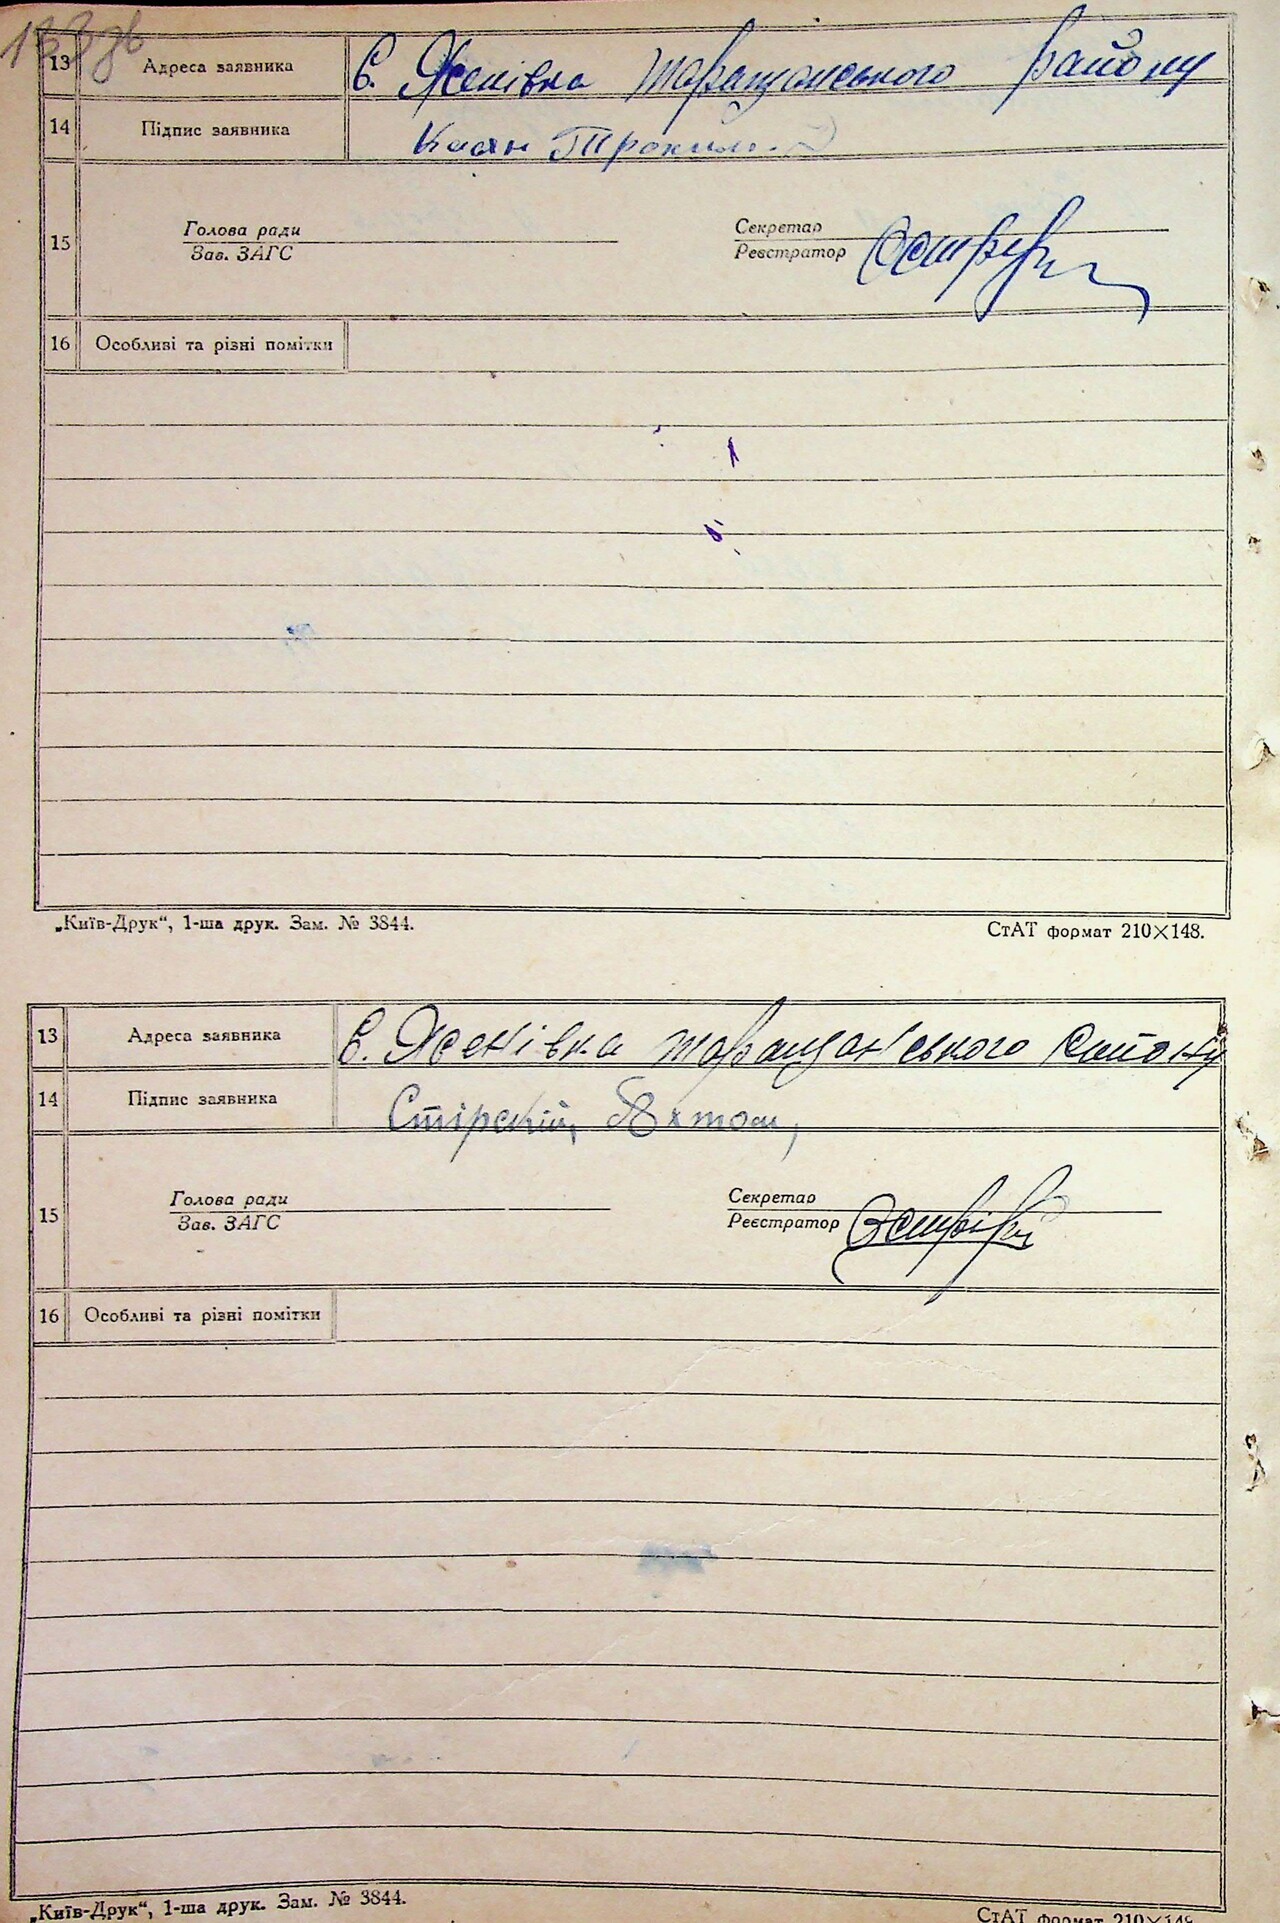 133 зв
13 Адреса заявника с. Ясенівка таращанського району
14 Підпис заявника Касян
15 Голова ради Секретар
Зав. ЗАГС Реєстратор
16 Особливі та різні помітки
„Київ-Друк“, 1-ша друк. Зам. № 3844. СтАТ формат 210×148.
13 Адреса заявника с. Ясенівка таращанського району
14 Підпис заявника
15 Голова ради Секретар
Зав. ЗАГС Реєстратор
16 Особливі та різні помітки
„Київ-Друк“, 1-ша друк. Зам. № 3844. СтАТ формат 210×148.